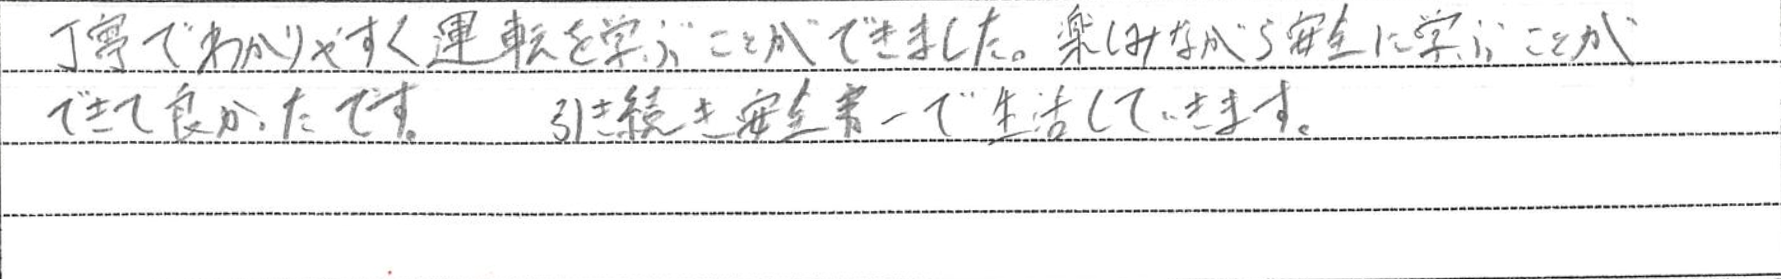 丁寧でわかりやすく運転を学ぶことができました。楽しみながら安全に学ぶことが
できて良かったです。 引き続き安全第一で生活していきます。